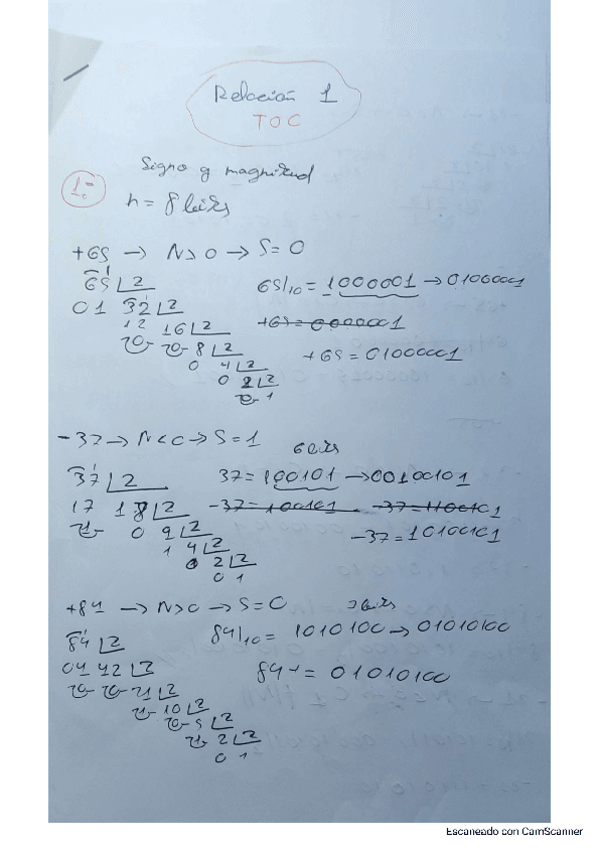 Relación 1
TOC
1:
Signo y magnitud
n = 8 bits
+65 → N>0 → S=0
65 ∟2
01 32 ∟2
12 16 ∟2
0 0 8 ∟2
0 4 ∟2
0 2 ∟2
0 1
65/10 = 1000001 → 01000001
+65 = 01000001
-37 → N<0 → S=1
6 bits
37 ∟2
17 18 ∟2
0 9 ∟2
1 4 ∟2
0 2 ∟2
0 1
37 = 100101 → 00100101
-37 = 100101 -37 = 1100101
-37 = 10100101
+84 → N>0 → S=0
7 bits
84 ∟2
04 42 ∟2
0 0 21 ∟2
10 ∟2
0 5 ∟2
2 ∟2
0 1
84/10 = 1010100 → 01010100
84 = 01010100
Escaneado con CamScanner